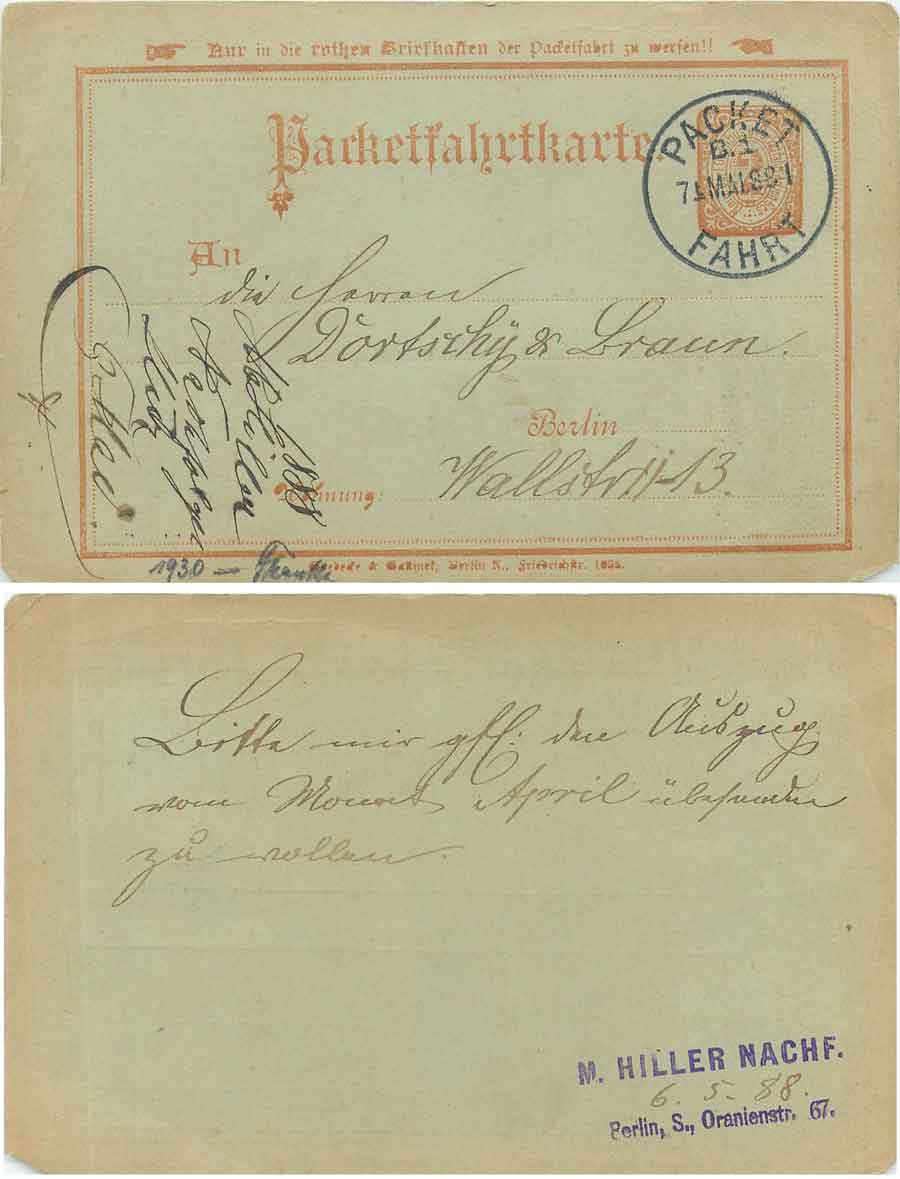 Nur in die rothen Briefkasten der Packetfahrt zu werfen!!
Packetfahrtkarte.
PACKET
B.1
7 MAI.88 1
FAHRT
An
die Herren
Dörtschÿ & Braun.
Berlin
Wallstr 13.
Wohnung:
1888
1930 —
Berlin N., Friedrichstr. 105a.
Bitte mir gfl. den Auszug
vom Monat April übersenden
zu wollen.
M. HILLER NACHF.
6. 5. 88.
Berlin, S., Oranienstr. 67.